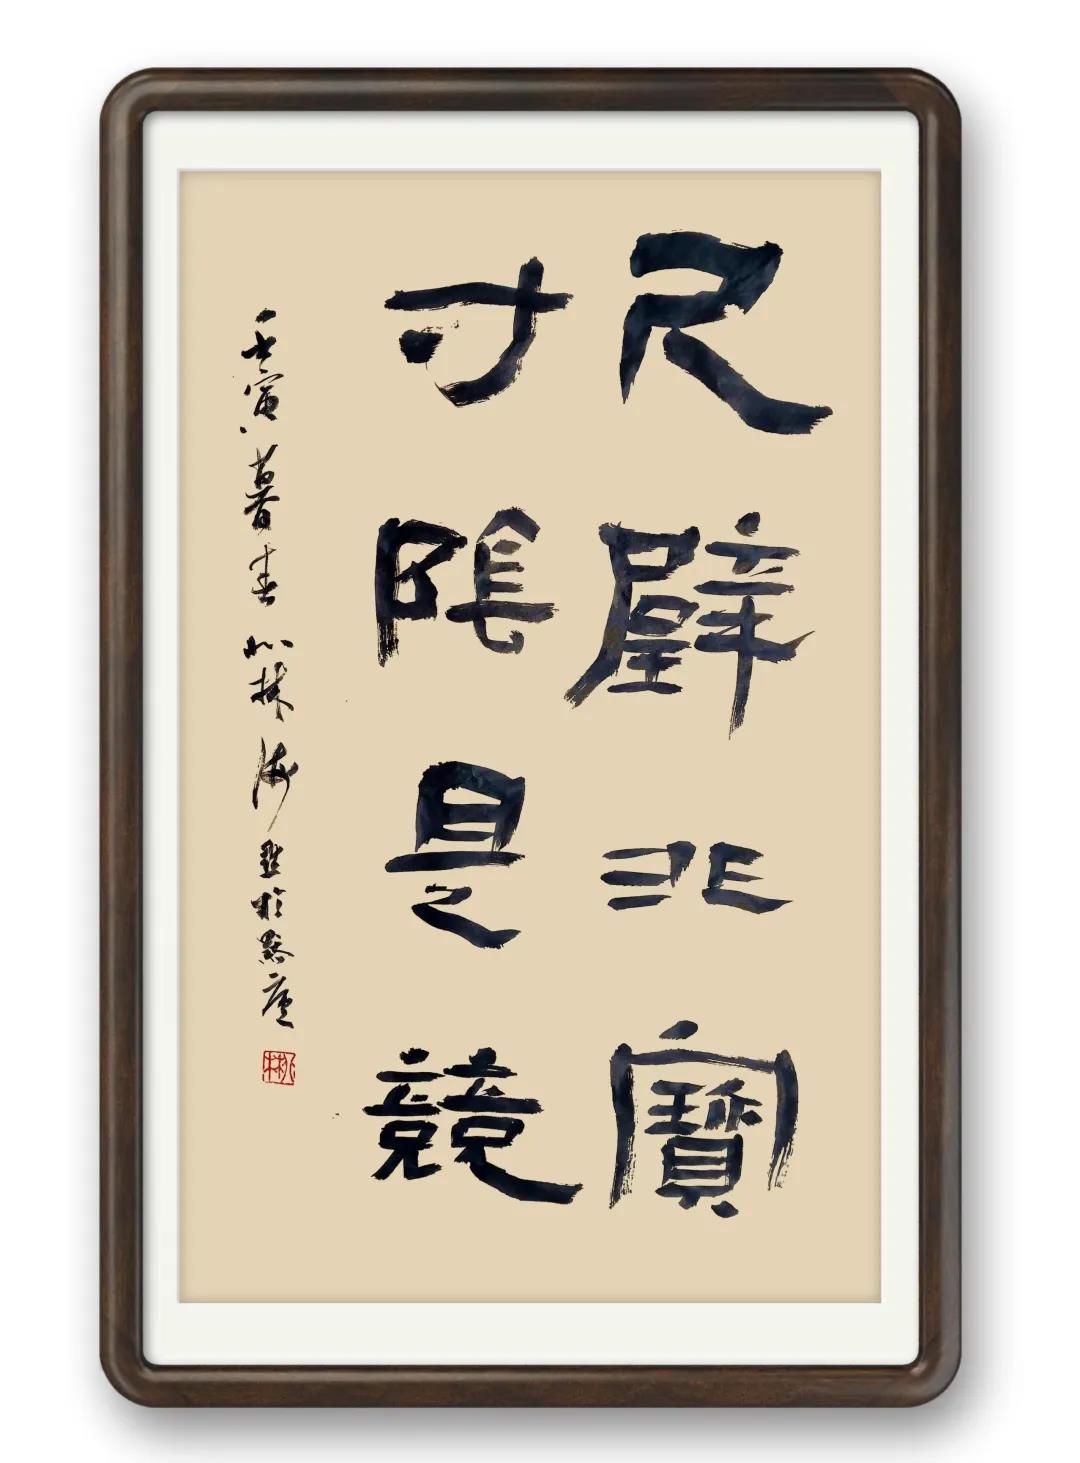 尺璧非寶
寸陰是競
壬寅暮春 林海 並於 廬